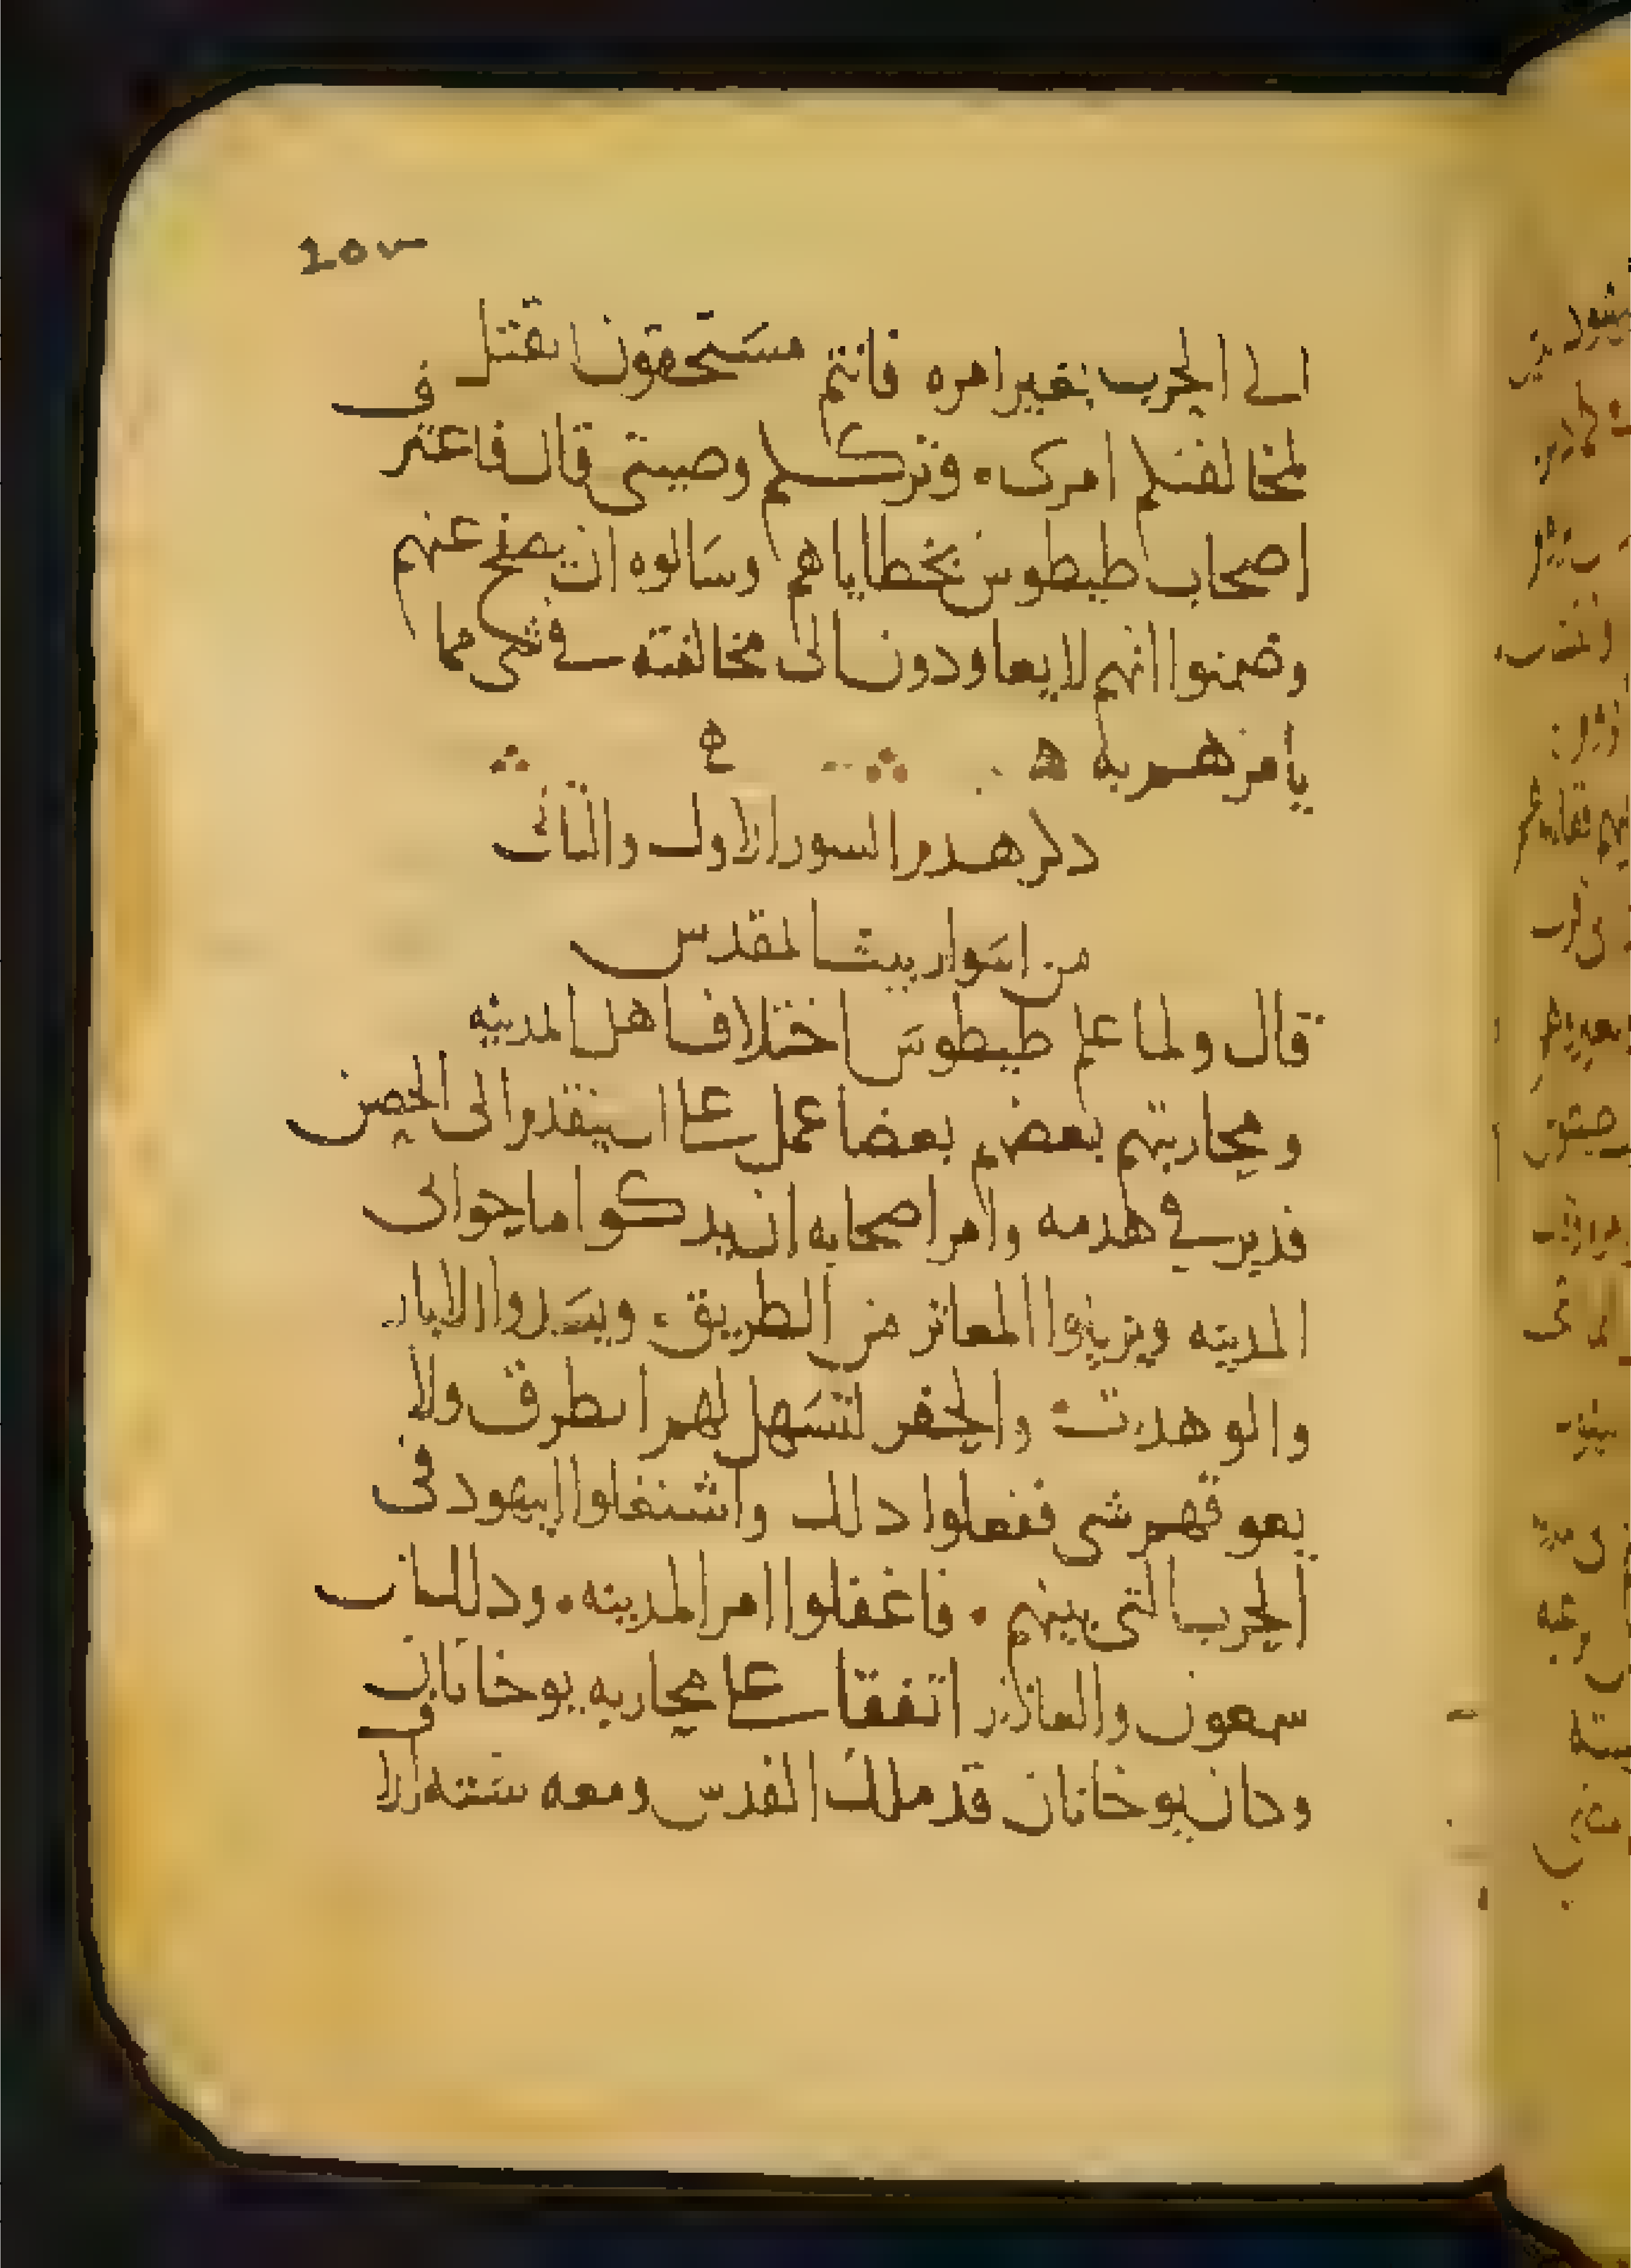 ١٥٣
الى الحرب بغير امره فانتم مستحقون القتل
لمخالفتكم امرى. وترككم وصيتى قال فاعترف
اصحاب طيطوس بخطاياهم وسالوه ان يصفح عنهم
وضمنوا انهم لا يعاودون الى مخالفته فى شى مما
يامرهم به
ذكر هدم السور الاول والثانى
من اسوار بيت المقدس
قال ولما علم طيطوس اختلاف اهل المدينه
ومحاربتهم بعضهم بعضا عمل على ان يتقدم الى الحصن
فى هدمه وامر اصحابه ان يدكوا ما حوالى
المدينه ويزيلوا المعاثر من الطريق. ويسدوا الابار
والوهدت والحفر لتسهل لهم الطرق ولا
يعوقهم شى ففعلوا ذلك واشتغلوا اليهود فى
الحرب التى بينهم. فاغفلوا امر المدينه. وذلك ان
سمعون والعازار اتفقا على محاربه يوخانان
وكان يوخانان قد ملك القدس ومعه سته الاف